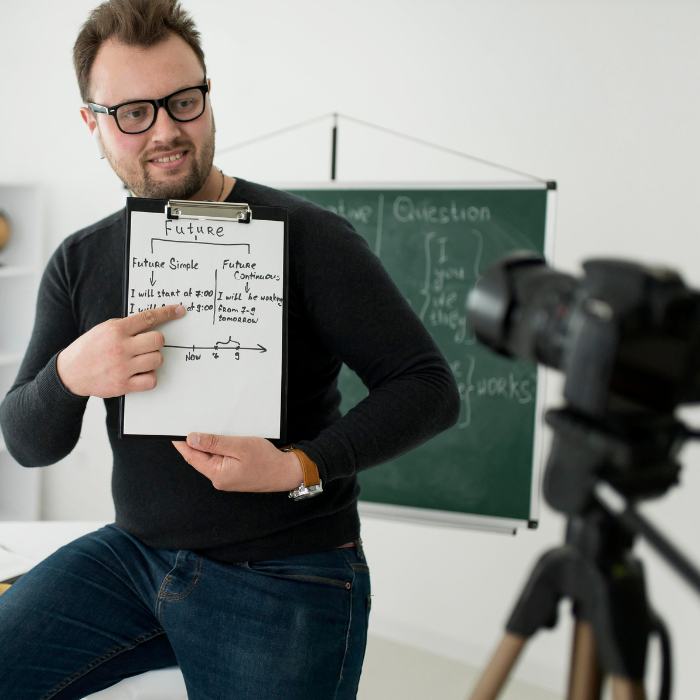 Future
Future Simple
I will start at 7:00
I will at 9:00
Future
Continuous
I will be working
from 7-9
tomorrow
Now 7 9
Question
I
you
we
they
works